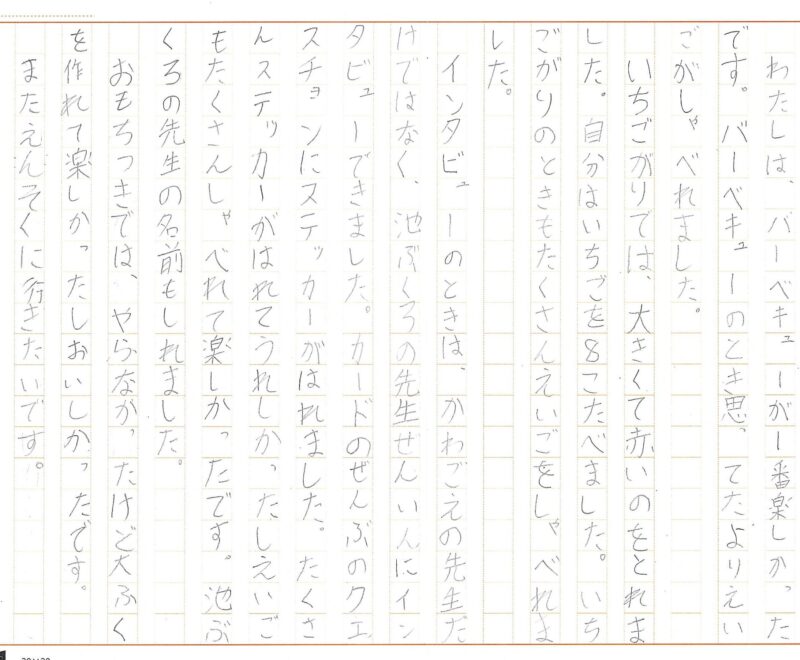 わたしは、バーベキューが一番楽しかった
です。バーベキューのとき思ってたよりえい
ごがしゃべれました。
いちごがりでは、大きくて赤いのをとれま
した。自分はいちごを8こたべました。いち
ごがりのときもたくさんえいごをしゃべれま
した。
インタビューのときは、かわごえの先生だ
けではなく、池ぶくろの先生ぜんいんにイン
タビューできました。カードのぜんぶのクエ
スチョンにステッカーがはれました。たくさ
んステッカーがはれてうれしかったしえいご
もたくさんしゃべれて楽しかったです。池ぶ
くろの先生の名前もしれました。
おもちつきでは、やらなかったけど大ふく
を作れて楽しかったしおいしかったです。
またえんそくに行きたいです。